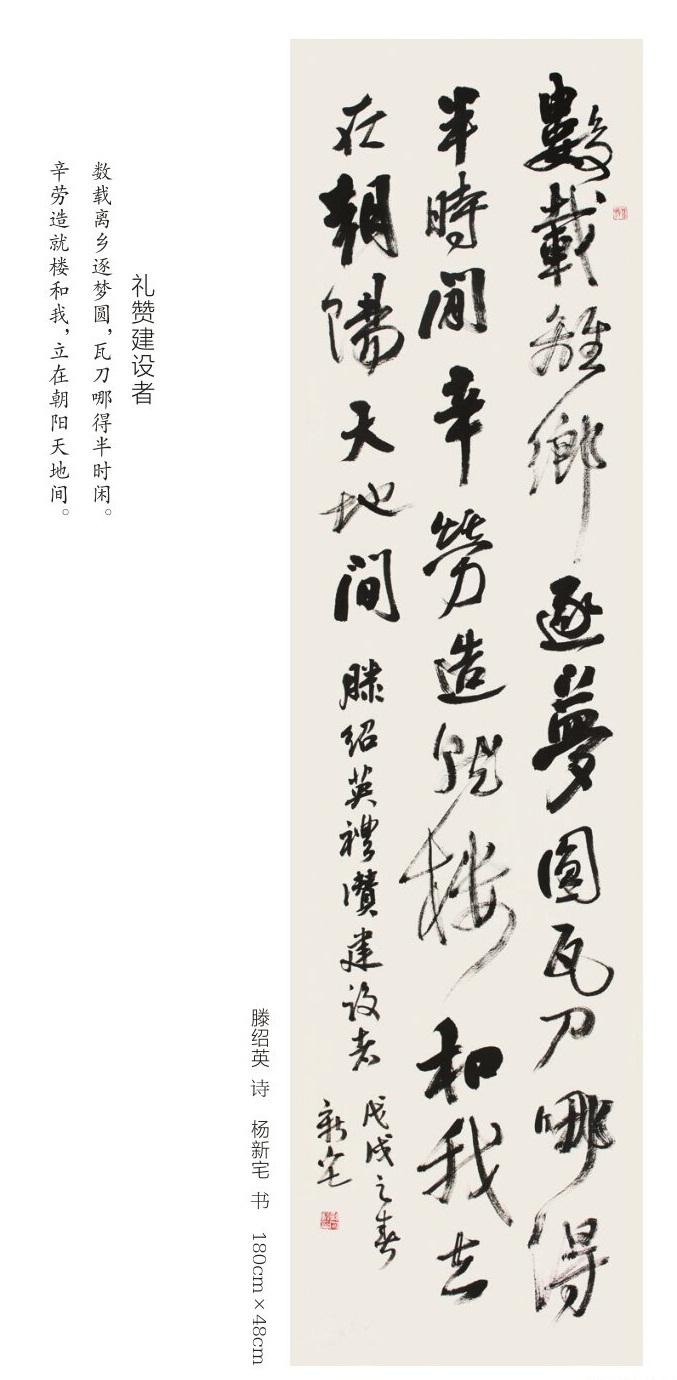 數載離鄉逐夢圓瓦刀哪得
半時間辛勞造就樓和我立
在朝陽天地间
滕绍英禮讚建设者
戊戌之春
新宅
礼赞建设者
数载离乡逐梦圆，瓦刀哪得半时闲。
辛劳造就楼和我，立在朝阳天地间。
滕绍英 诗 杨新宅 书 180cm×48cm